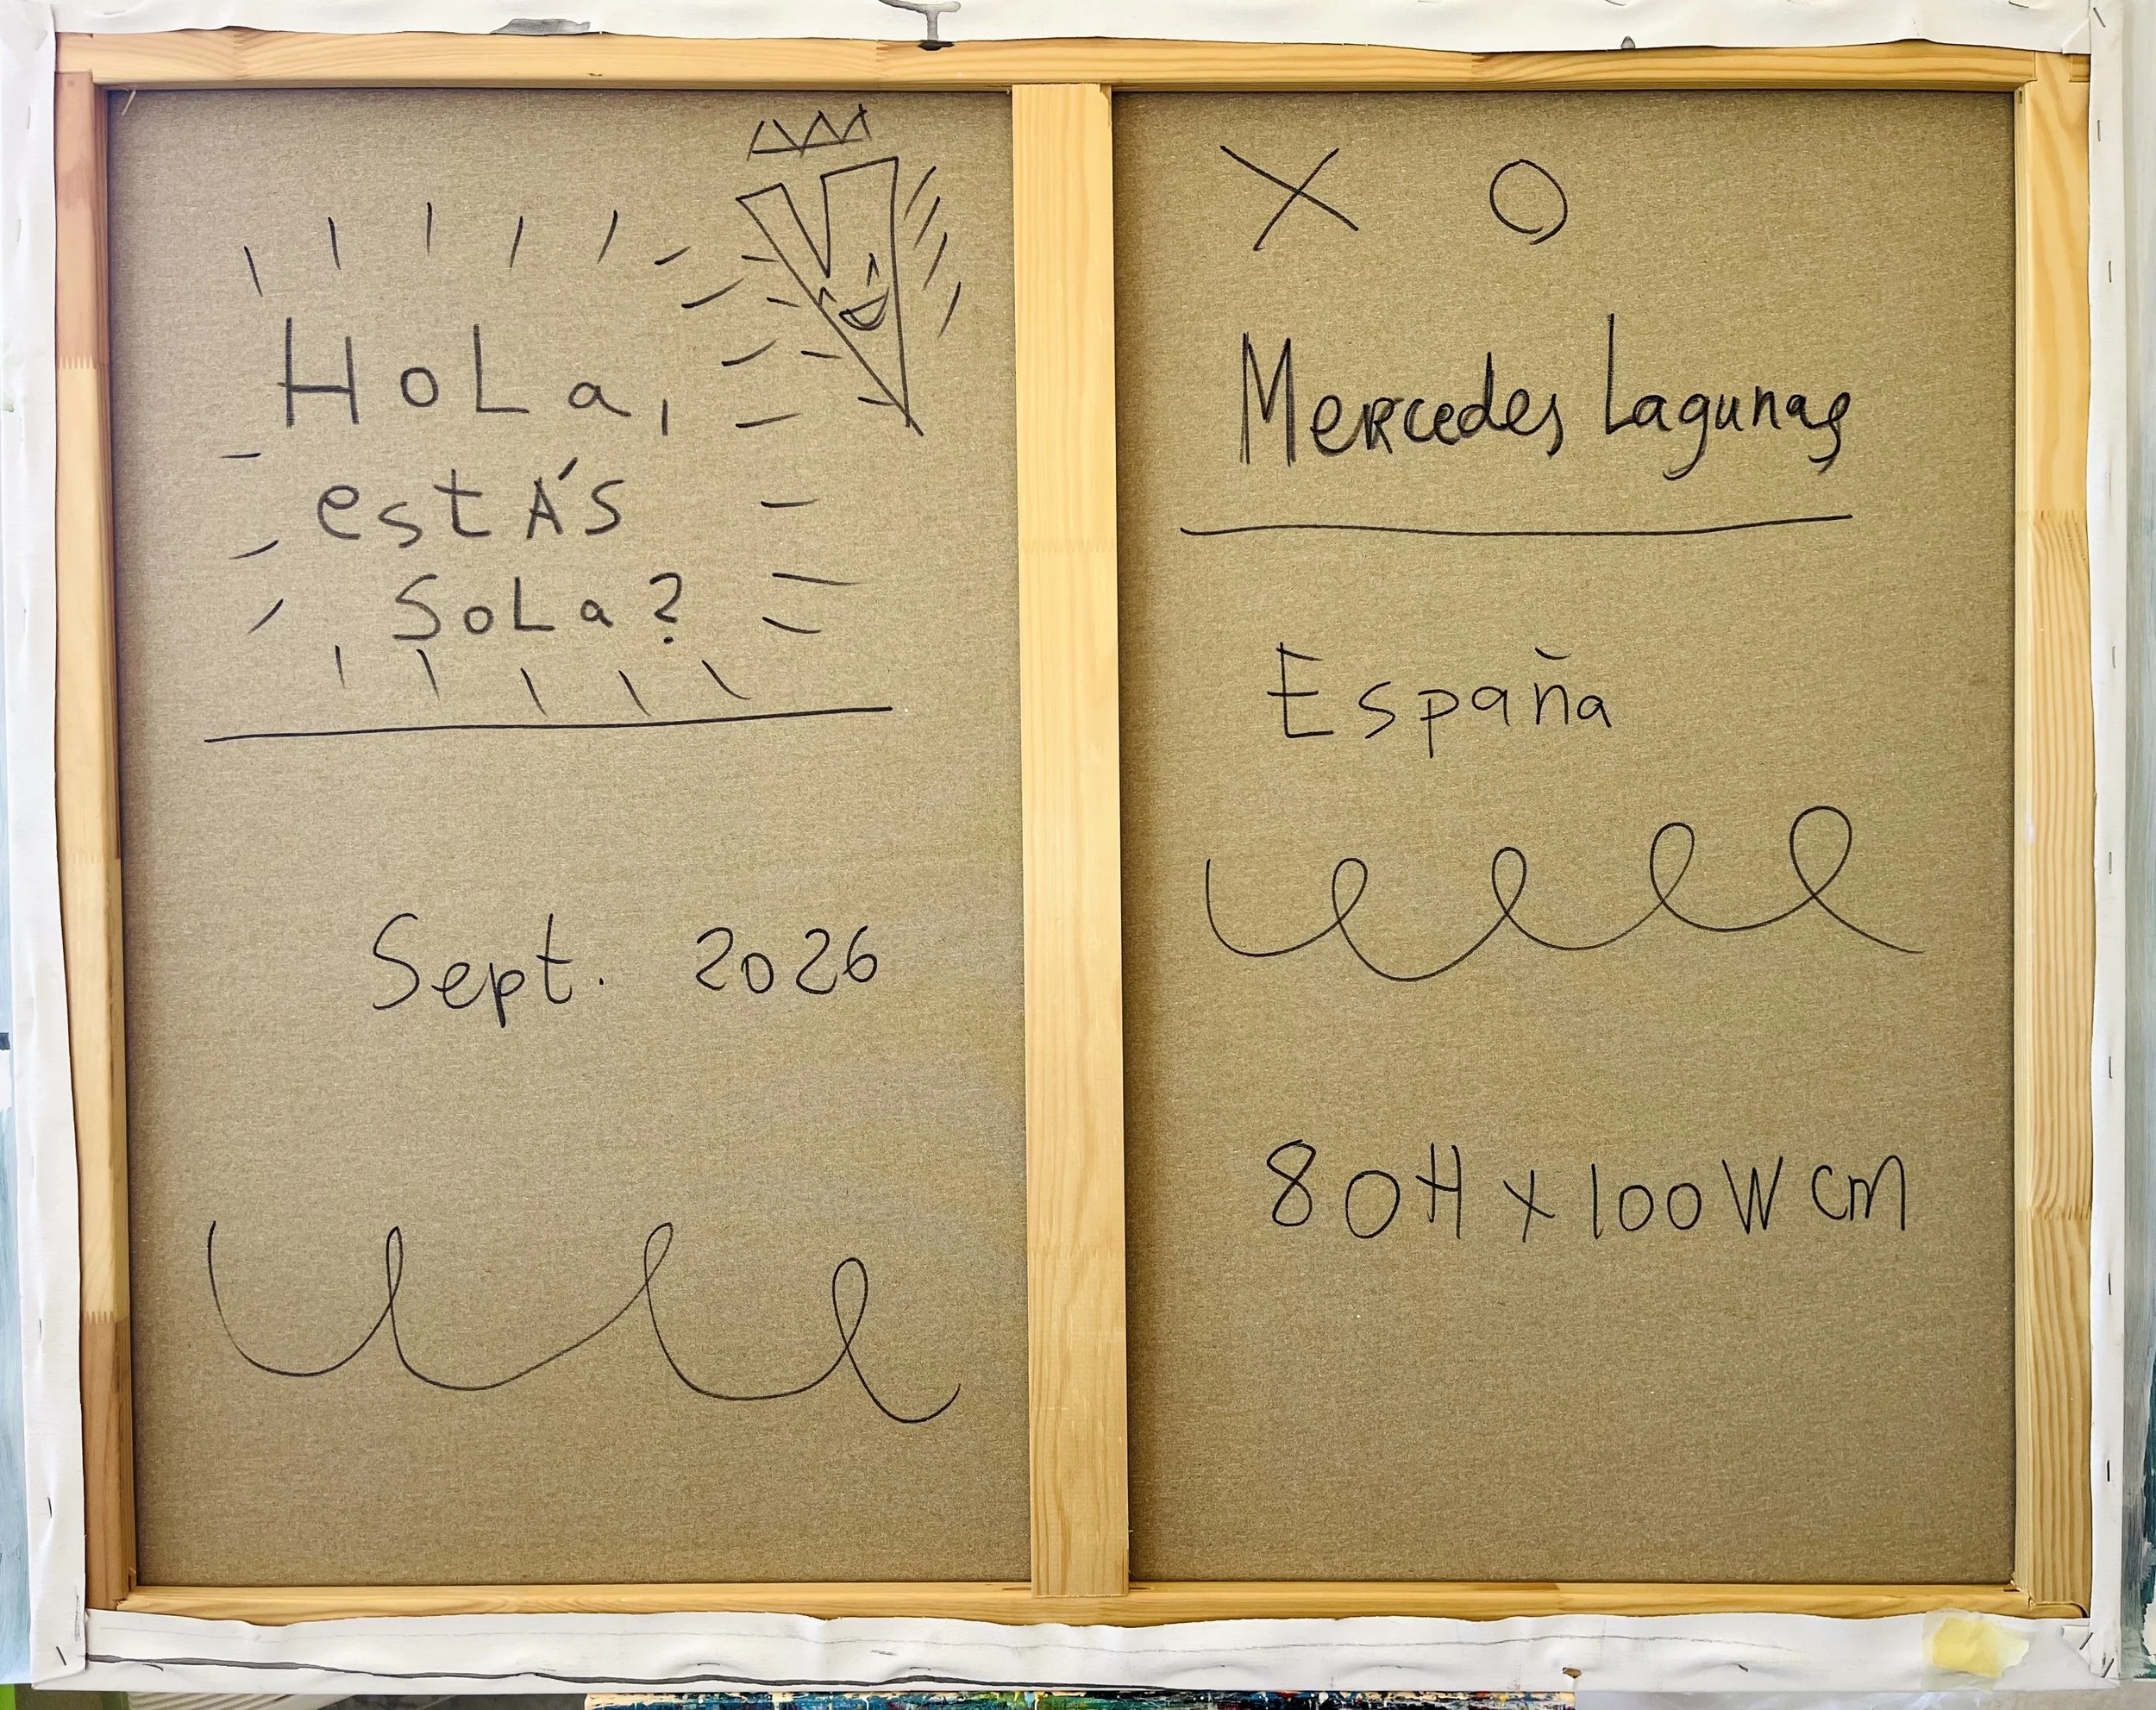 HoLa,
estÁs
SoLa?
Sept. 2026
X O
Mercedes Lagunas
España
80H x 100W cm